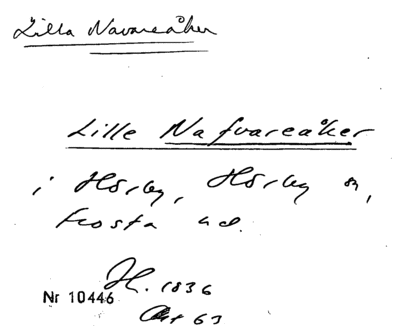 Lilla Navareåker
Lille Nafvareåker
i Hörby, Hörby sn,
Frosta hd.
H. 1836
Nr 10446
Akt 63